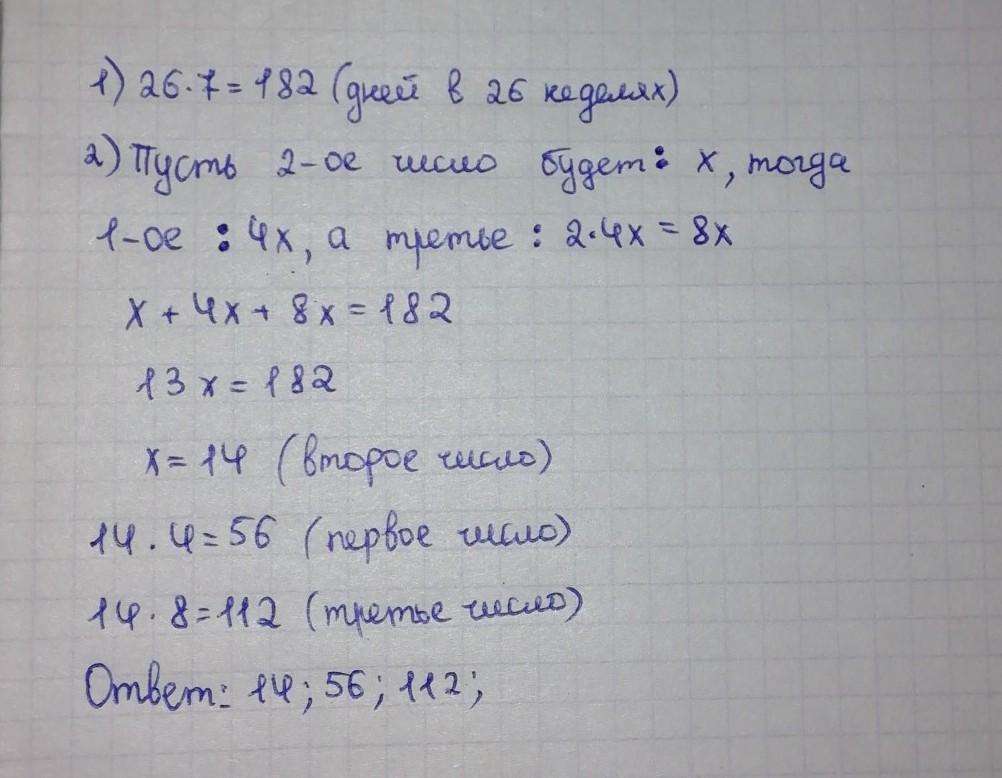 1) 26·7=182 (дней в 26 неделях)
2) Пусть 2-ое число будет: х, тогда
1-ое : 4х, а третье : 2·4х = 8х
х + 4х + 8х = 182
13х = 182
х = 14 (второе число)
14 · 4 = 56 (первое число)
14 · 8 = 112 (третье число)
Ответ: 14; 56; 112;